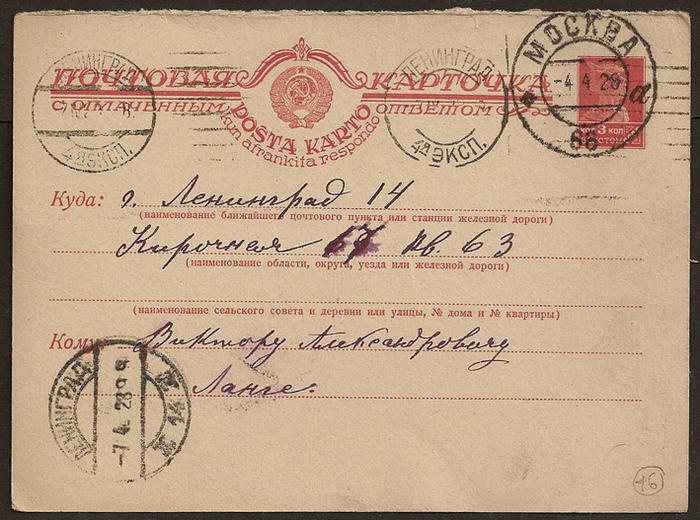 МОСКВА
-4 4 28
d
66
ЛЕНИНГРАД
4й ЭКСП.
ЛЕНИНГРАД
4й ЭКСП.
ПОЧТОВАЯ КАРТОЧКА
С ОПЛАЧЕННЫМ ОТВЕТОМ
POŜTA KARTO
kun afrankita respondo
3 КОП
Куда: г. Ленинград 14
(наименование ближайшего почтового пункта или станции железной дороги)
Кирочная 17 кв. 63
(наименование области, округа, уезда или железной дороги)
(наименование сельского совета и деревни или улицы, № дома и № квартиры)
Кому: Виктору Александровичу
Ланге.
ЛЕНИНГРАД
-7 4. 28
16